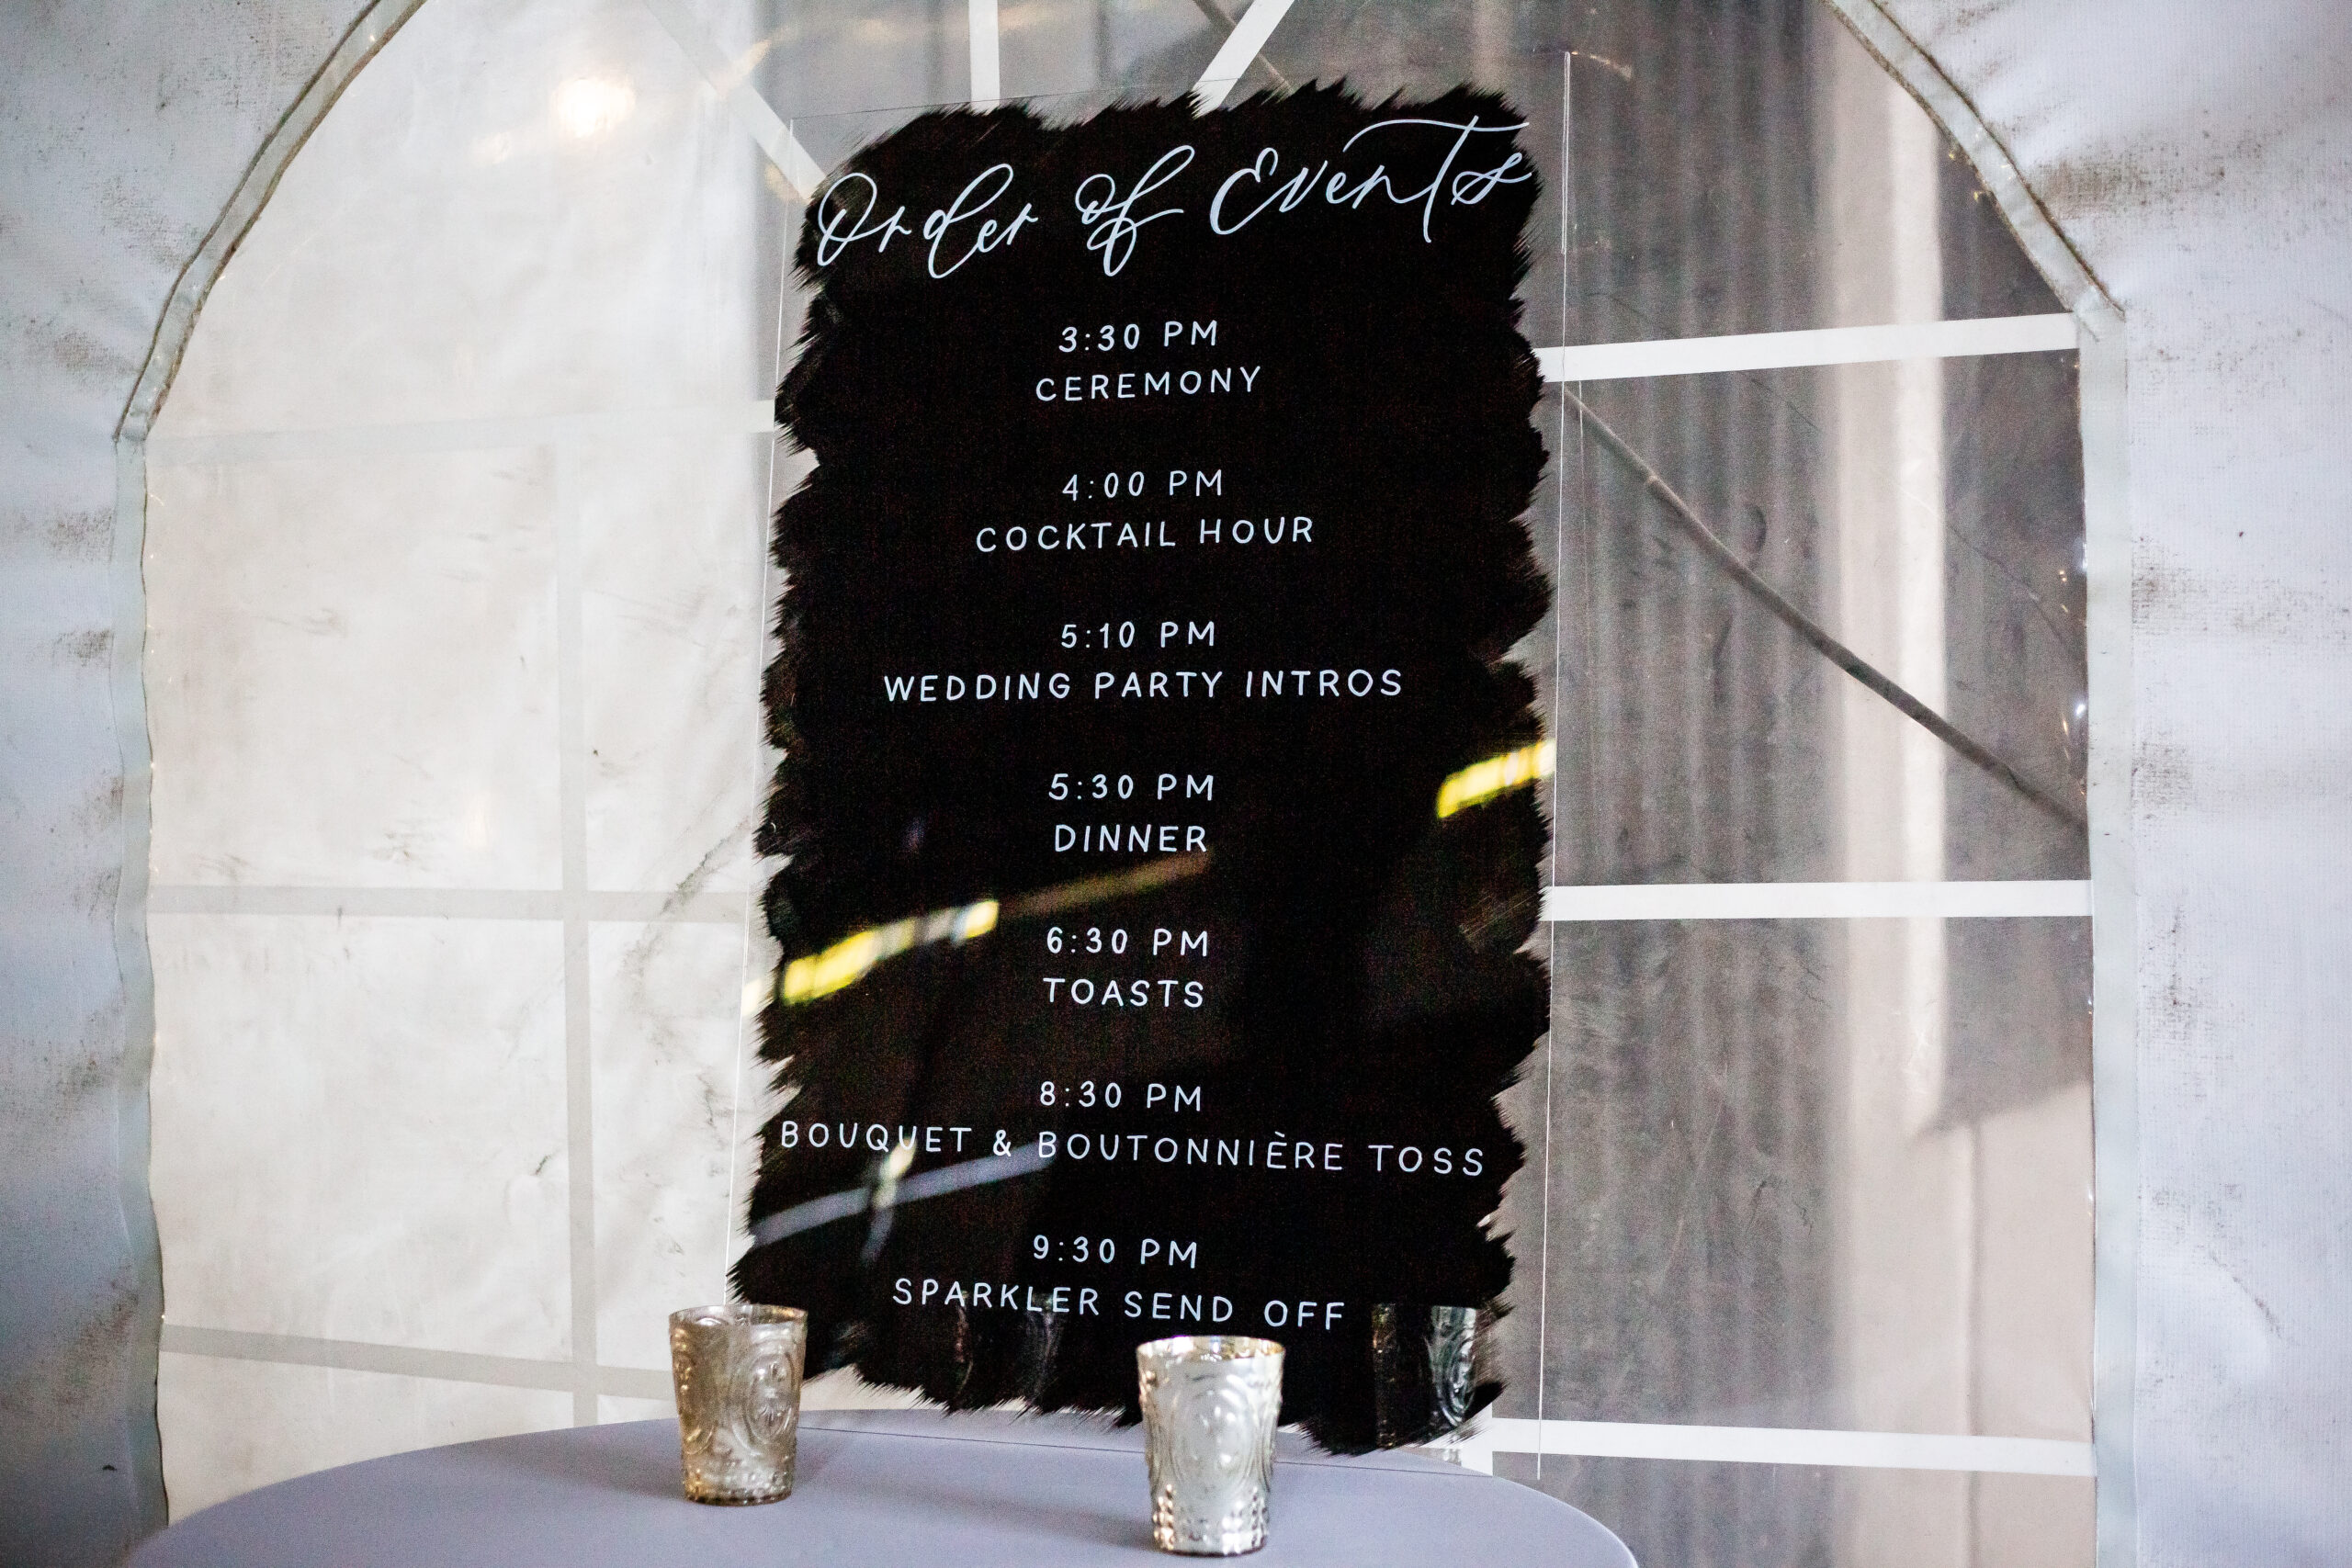 Order of Events
3:30 PM
CEREMONY
4:00 PM
COCKTAIL HOUR
5:10 PM
WEDDING PARTY INTROS
5:30 PM
DINNER
6:30 PM
TOASTS
8:30 PM
BOUQUET & BOUTONNIÈRE TOSS
9:30 PM
SPARKLER SEND OFF